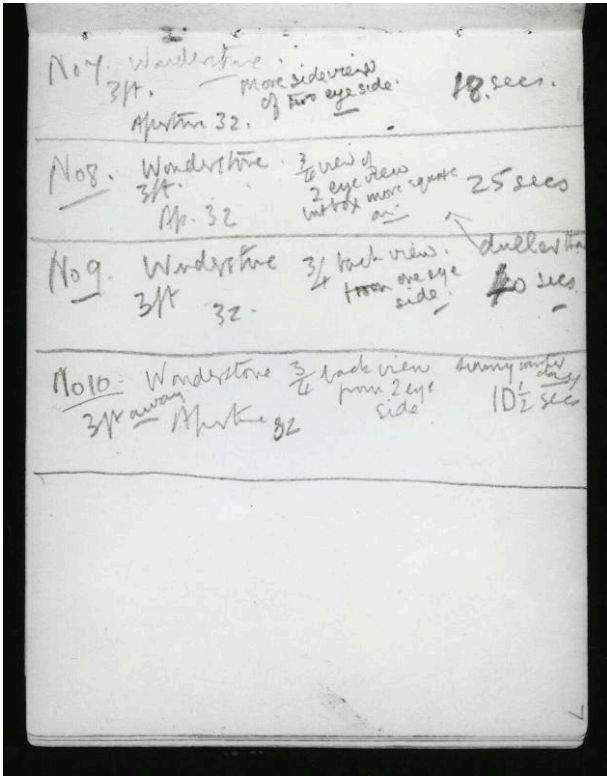 No 7. Wonderstone.
3 ft.
Aperture 32.
more side view
of two eye side.
18. secs.
No 8. Wonderstone.
3 ft.
Ap. 32
3/4 view of
2 eye view
but box more square
on.
25 secs
No 9. Wonderstone
3 ft
32.
3/4 back view.
from one eye
side.
duller than
secs
No 10. Wonderstone
3 ft away
Aperture 32
3/4 back view
from 2 eye
side
sunny winter
day
10 1/2 secs